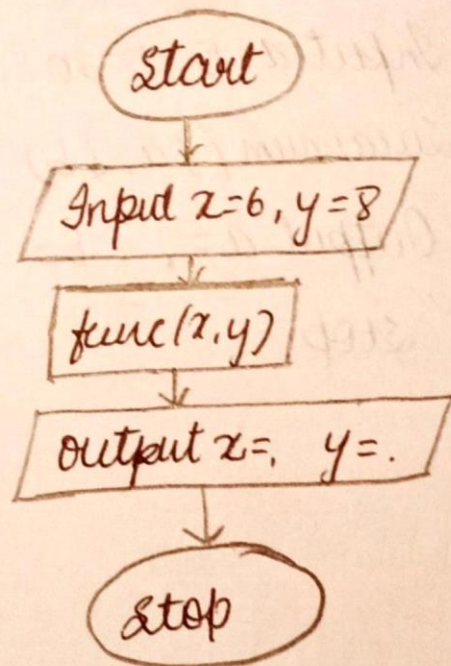 Start
Input x=6, y=8
func(x,y)
output x=, y=.
stop